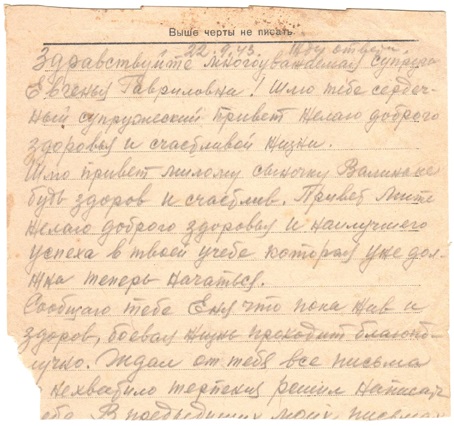 Выше черты не писать
22.9.43. Жду ответа.
Здравствуйте многоуважаемая супруга
Евгенья Гавриловна! Шлю тебе сердеч-
ный супружеский привет желаю доброго
здоровья и счастливой жизни.
Шлю привет милому сыночку Валиньке
будь здоров и счастлив. Привет Мите
желаю доброго здоровья и наилучшего
успеха в твоей учебе которая уже дол-
жна теперь начаться.
Сообщаю тебе Еня что пока жив и
здоров, боевая жизнь проходит благопо-
лучно. Ждал от тебя все письма
нехватило терпения решил написать
тебе. В предыдущих моих письмах